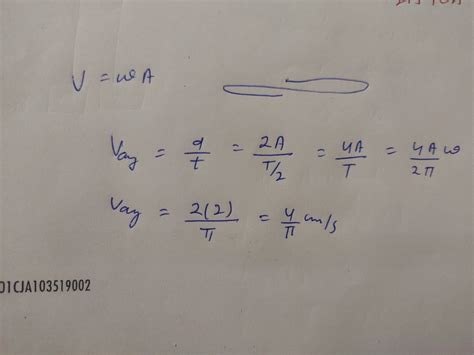 V = ωA
Vav = d/t = 2A/(T/2) = 4A/T = 4Aω/2π
Vav = 2(2)/π = 4/π cm/s
01CJA103519002